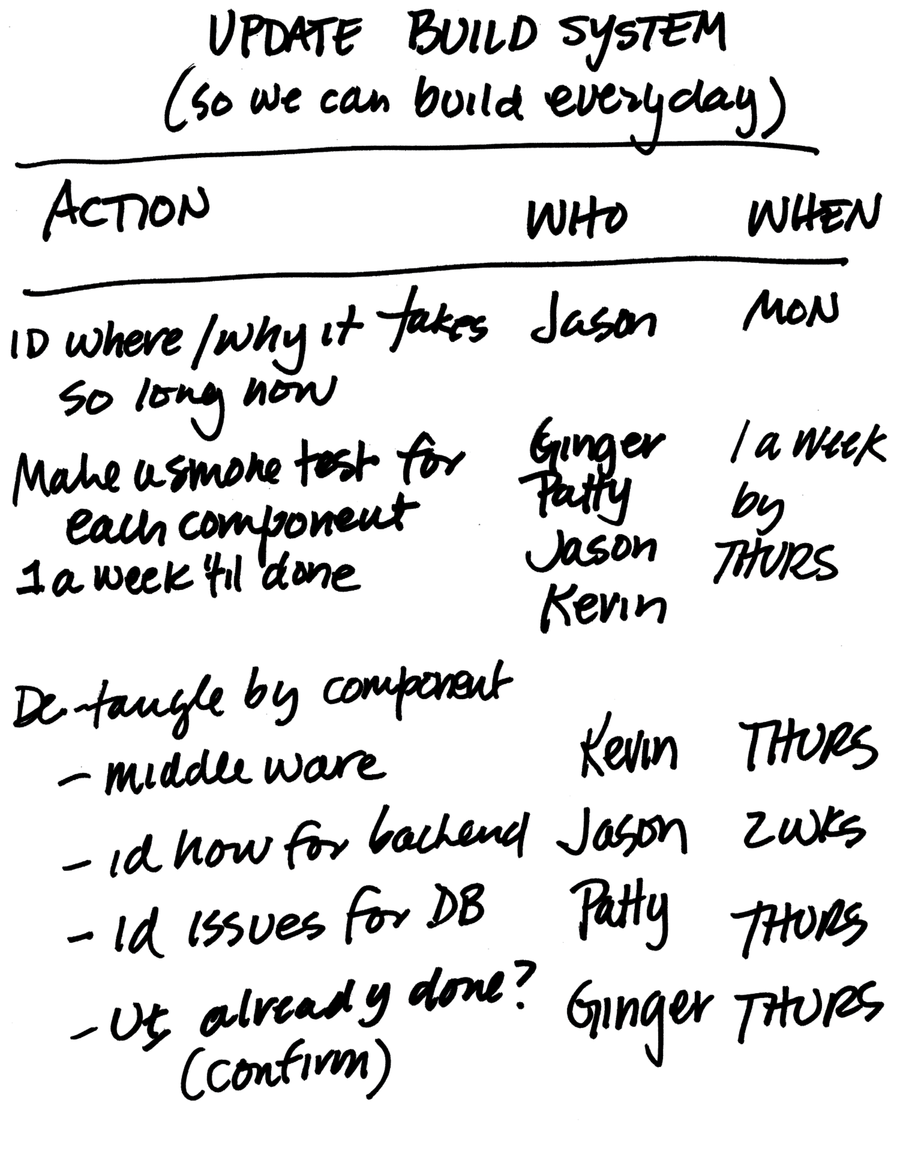 UPDATE BUILD SYSTEM
(so we can build everyday)
ACTION WHO WHEN
ID where/why it takes Jason MON
so long now
Make a smoke test for Ginger 1 a week
each component Patty by
1 a week 'til done Jason THURS
Kevin
De-tangle by component
- middleware Kevin THURS
- id how for backend Jason 2 wks
- Id issues for DB Patty THURS
- already done? Ginger THURS
(confirm)